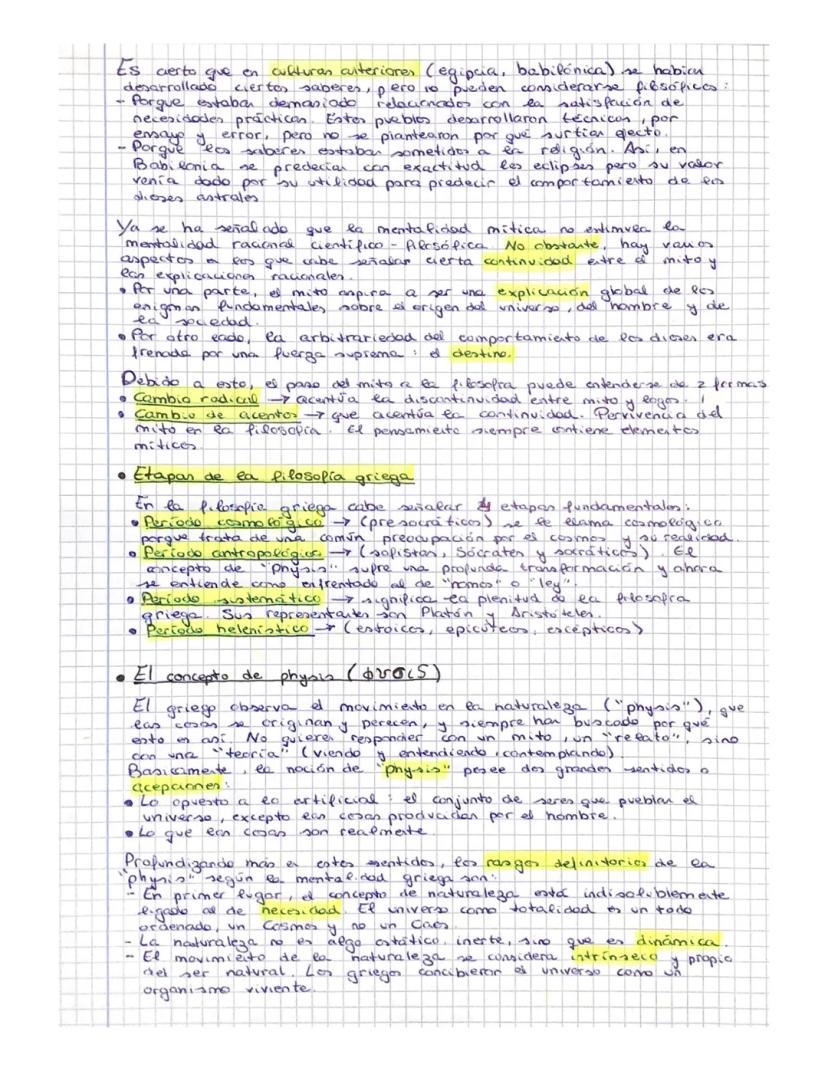 Es cierto que en culturas anteriores (egipcia, babilónica) se habían
desarrollado ciertos saberes, pero no pueden considerarse filosóficos:
- Porque estaban demasiado relacionados con la satisfacción de
necesidades prácticas. Estos pueblos desarrollaron técnicas, por
ensayo y error, pero no se plantearon por qué surtían efecto.
- Porque los saberes estaban sometidos a la religión. Así, en
Babilonia se predecían con exactitud los eclipses pero su valor
venía dado por su utilidad para predecir el comportamiento de los
dioses astrales
Ya se ha señalado que la mentalidad mítica no
mentalidad racional científico-filosófica. No obstante, hay varios
aspectos a los que cabe señalar cierta continuidad entre el mito y
las explicaciones racionales.
• Por una parte, el mito aspira a ser una explicación global de los
enigmas fundamentales sobre el origen del universo, del hombre y de
la sociedad.
• Por otro lado, la arbitrariedad del comportamiento de los dioses era
frenada por una fuerza suprema: el destino.
Debido a esto, el paso del mito a la filosofía puede entenderse de 2 formas
• Cambio radical → acentúa la discontinuidad entre mito y logos.
• Cambio de acentos → que acentúa la continuidad. Pervivencia del
mito en la filosofía. El pensamiento siempre contiene elementos
míticos.
• Etapas de la filosofía griega
En la filosofía griega cabe señalar 4 etapas fundamentales:
• Período cosmológico → (presocráticos) se le llama cosmológico
porque trata de una común preocupación por el cosmos y su realidad.
• Período antropológico → (sofistas, Sócrates y socráticos). El
concepto de "Physis" sufre una profunda transformación y ahora
se entiende como enfrentado al de "nomos" o "ley".
• Período sistemático → significa la plenitud de la filosofía
griega. Sus representantes son Platón y Aristóteles.
• Período helenístico → (estoicos, epicúreos, escépticos)
• El concepto de physis (φυσις)
El griego observa el movimiento en la naturaleza ("physis"), que
las cosas se originan y perecen, y siempre han buscado por qué
esto es así. No quieren responder con un mito, un "relato", sino
con una "teoría" (viendo y entendiendo, contemplando)
Básicamente, la noción de "physis" posee dos grandes sentidos o
acepciones:
• Lo opuesto a lo artificial: el conjunto de seres que pueblan el
universo, excepto las cosas producidas por el hombre.
• Lo que las cosas son realmente.
Profundizando más en estos sentidos, los rasgos definitorios de la
"physis" según la mentalidad griega son:
- En primer lugar, el concepto de naturaleza está indisolublemente
ligado al de necesidad. El universo como totalidad es un todo
ordenado, un Cosmos y no un Caos.
- La naturaleza no es algo estático, inerte, sino que es dinámica.
- El movimiento de la naturaleza se considera intrínseco y propio
del ser natural. Los griegos concibieron el universo como un
organismo viviente.